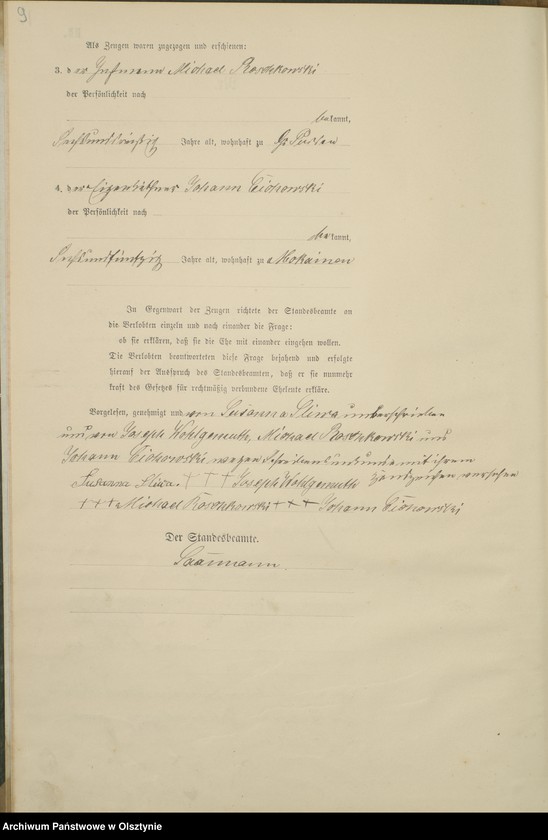 9
Als Zeugen waren zugezogen und erschienen:
3. der Instmann Michael Roschkowski
der Persönlichkeit nach
bekannt,
Jahre alt, wohnhaft zu Gr Purden
4. der Eigenkäthner Johann Cichowski
der Persönlichkeit nach
bekannt,
sechsundfünfzig Jahre alt, wohnhaft zu Mokainen
In Gegenwart der Zeugen richtete der Standesbeamte an
die Verlobten einzeln und nach einander die Frage:
ob sie erklären, daß sie die Ehe mit einander eingehen wollen.
Die Verlobten beantworteten diese Frage bejahend und erfolgte
hierauf der Ausspruch des Standesbeamten, daß er sie nunmehr
kraft des Gesetzes für rechtmäßig verbundene Eheleute erkläre.
Vorgelesen, genehmigt und von Susanna Sliwa unterschrieben
und von Joseph Wohlgemuth, Michael Roschkowski und
Johann Cichowski wegen Schreibensunkunde mit ihrem
Handzeichen versehen
Susanna Sliwa. +++ Joseph Wohlgemuth
+++ Michael Roschkowski +++ Johann Cichowski
Der Standesbeamte.
Archiwum Państwowe w Olsztynie